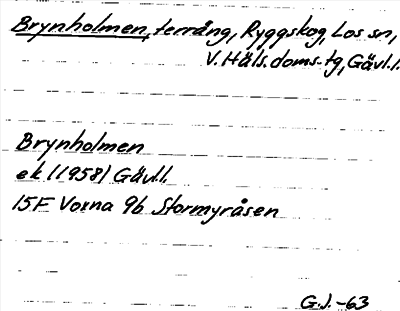 Brynholmen, terräng, Ryggskog, Los sn,
V. Häls. doms. tg, Gävl. l.
Brynholmen
ek (1958) Gävl. l.
15F Voxna 9b Stormyråsen
G.J. -63